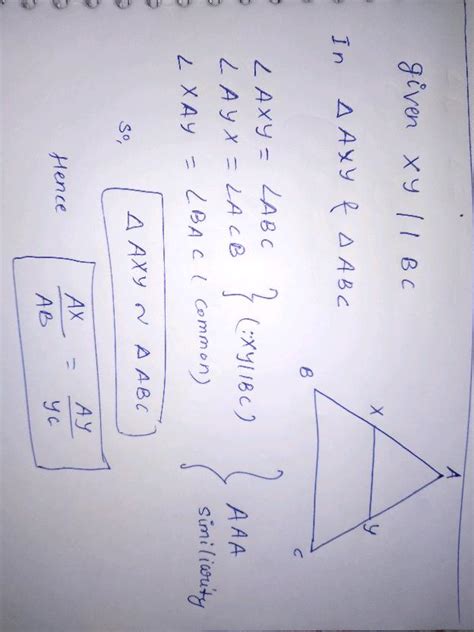 given XY || BC
In △AXY & △ABC
∠AXY = ∠ABC
∠AYX = ∠ACB } (∵XY||BC)
∠XAY = ∠BAC (common)
} AAA
similiarity
So, △AXY ~ △ABC
Hence AX/AB = AY/YC
A
X
Y
B
C